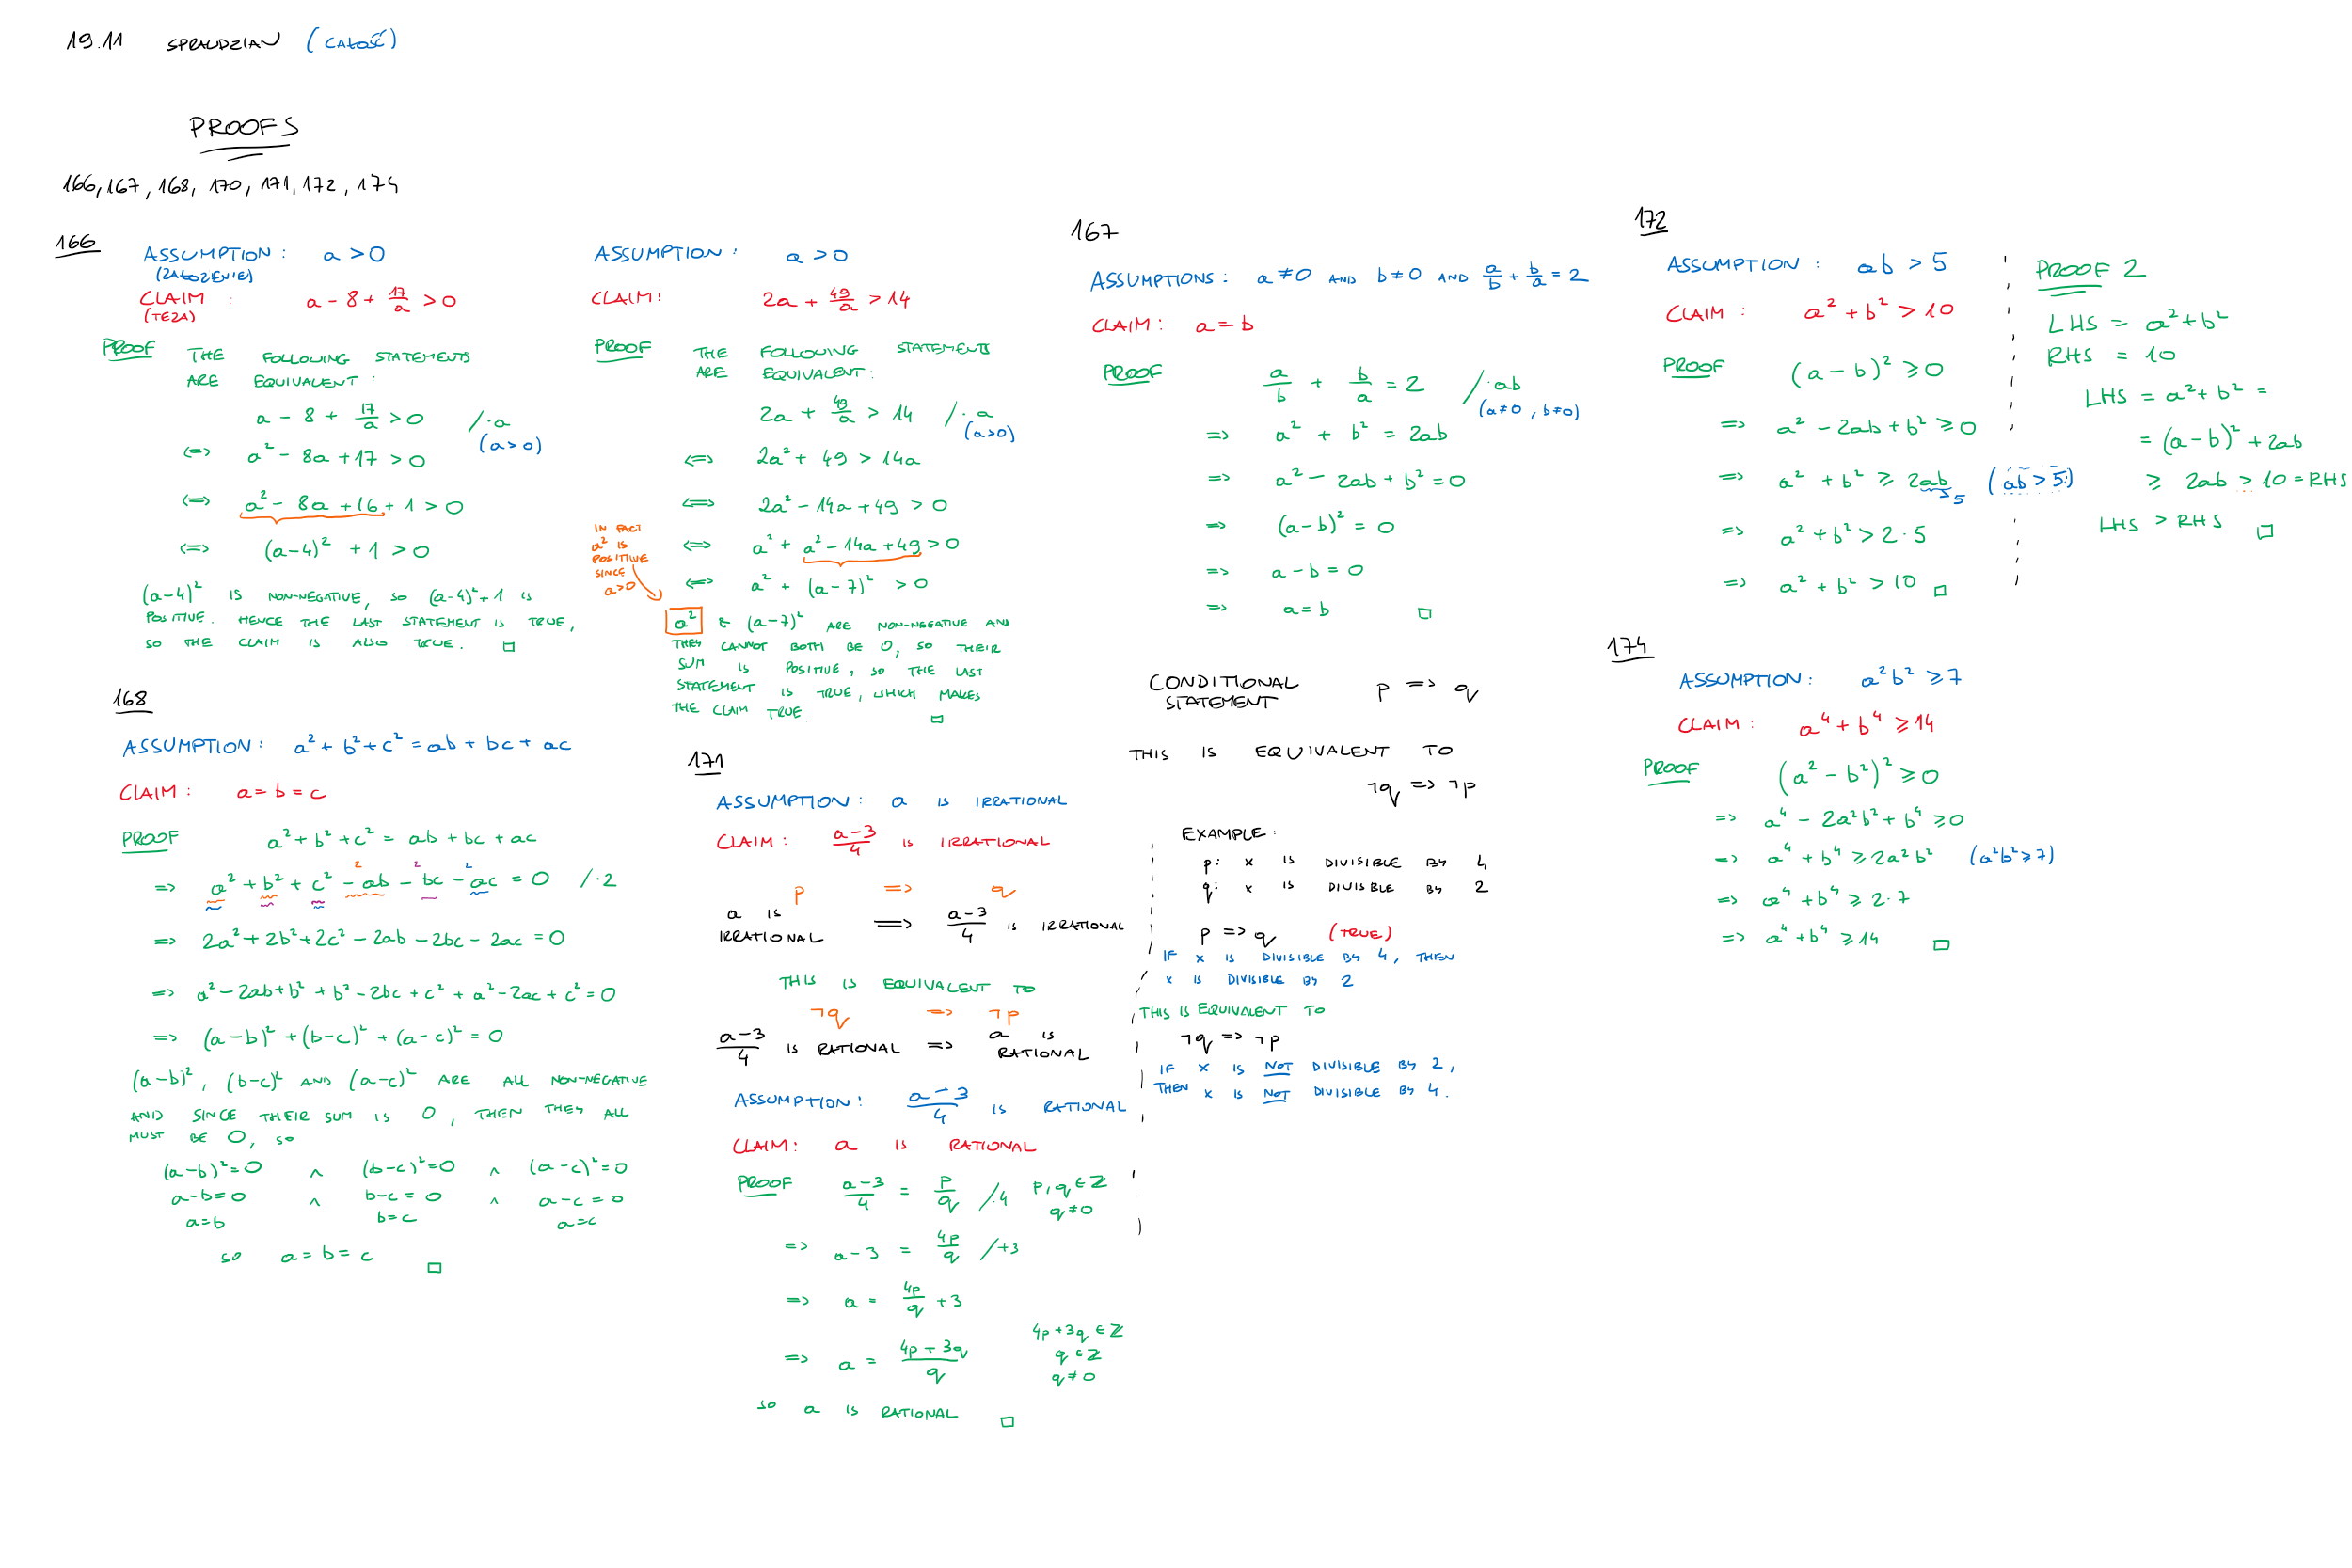 19.11 SPRAWDZIAN (CAŁOŚĆ)
PROOFS
166, 167, 168, 170, 171, 172, 174
166
ASSUMPTION: a > 0
(ZAŁOŻENIE)
CLAIM: a - 8 + 17/a > 0
(TEZA)
PROOF THE FOLLOWING STATEMENTS
ARE EQUIVALENT:
a - 8 + 17/a > 0 /·a
(a>0)
<=> a² - 8a + 17 > 0
<=> a² - 8a + 16 + 1 > 0
<=> (a-4)² + 1 > 0
(a-4)² IS NON-NEGATIVE, SO (a-4)²+1 IS
POSITIVE. HENCE THE LAST STATEMENT IS TRUE,
SO THE CLAIM IS ALSO TRUE. □
ASSUMPTION: a > 0
CLAIM: 2a + 49/a > 14
PROOF THE FOLLOWING STATEMENTS
ARE EQUIVALENT:
2a + 49/a > 14 /·a
(a>0)
<=> 2a² + 49 > 14a
<=> 2a² - 14a + 49 > 0
<=> a² + a² - 14a + 49 > 0
<=> a² + (a-7)² > 0
IN FACT
a² IS
POSITIVE
SINCE
a>0
a² & (a-7)² ARE NON-NEGATIVE AND
THEY CANNOT BOTH BE 0, SO THEIR
SUM IS POSITIVE, SO THE LAST
STATEMENT IS TRUE, WHICH MAKES
THE CLAIM TRUE. □
167
ASSUMPTIONS: a ≠ 0 AND b ≠ 0 AND a/b + b/a = 2
CLAIM: a = b
PROOF a/b + b/a = 2 /·ab
(a≠0, b≠0)
=> a² + b² = 2ab
=> a² - 2ab + b² = 0
=> (a-b)² = 0
=> a - b = 0
=> a = b □
168
ASSUMPTION: a² + b² + c² = ab + bc + ac
CLAIM: a = b = c
PROOF a² + b² + c² = ab + bc + ac
2 2 2
=> a² + b² + c² - ab - bc - ac = 0 /·2
=> 2a² + 2b² + 2c² - 2ab - 2bc - 2ac = 0
=> a² - 2ab + b² + b² - 2bc + c² + a² - 2ac + c² = 0
=> (a-b)² + (b-c)² + (a-c)² = 0
(a-b)², (b-c)² AND (a-c)² ARE ALL NON-NEGATIVE
AND SINCE THEIR SUM IS 0, THEN THEY ALL
MUST BE 0, SO
(a-b)²=0 ∧ (b-c)²=0 ∧ (a-c)²=0
a-b=0 ∧ b-c=0 ∧ a-c=0
a=b b=c a=c
SO a = b = c □
171
ASSUMPTION: a IS IRRATIONAL
CLAIM: (a-3)/4 IS IRRATIONAL
p => q
a IS IRRATIONAL => (a-3)/4 IS IRRATIONAL
THIS IS EQUIVALENT TO
¬q => ¬p
(a-3)/4 IS RATIONAL => a IS RATIONAL
ASSUMPTION: (a-3)/4 IS RATIONAL
CLAIM: a IS RATIONAL
PROOF (a-3)/4 = p/q /·4 p,q ∈ ℤ
q≠0
=> a - 3 = 4p/q /+3
=> a = 4p/q + 3
=> a = (4p + 3q)/q
4p+3q ∈ ℤ
q ∈ ℤ
q≠0
SO a IS RATIONAL □
CONDITIONAL
STATEMENT p => q
THIS IS EQUIVALENT TO
¬q => ¬p
EXAMPLE:
p: x IS DIVISIBLE BY 4
q: x IS DIVISIBLE BY 2
p => q (TRUE)
IF x IS DIVISIBLE BY 4, THEN
x IS DIVISIBLE BY 2
THIS IS EQUIVALENT TO
¬q => ¬p
IF x IS NOT DIVISIBLE BY 2,
THEN x IS NOT DIVISIBLE BY 4.
172
ASSUMPTION: ab > 5
CLAIM: a² + b² > 10
PROOF (a-b)² ≥ 0
=> a² - 2ab + b² ≥ 0
=> a² + b² ≥ 2ab (ab > 5)
>5
=> a² + b² > 2·5
=> a² + b² > 10 □
PROOF 2
LHS = a² + b²
RHS = 10
LHS = a² + b² =
= (a-b)² + 2ab
≥ 2ab > 10 = RHS
LHS > RHS □
174
ASSUMPTION: a²b² ≥ 7
CLAIM: a⁴ + b⁴ ≥ 14
PROOF (a² - b²)² ≥ 0
=> a⁴ - 2a²b² + b⁴ ≥ 0
=> a⁴ + b⁴ ≥ 2a²b² (a²b² ≥ 7)
=> a⁴ + b⁴ ≥ 2·7
=> a⁴ + b⁴ ≥ 14 □